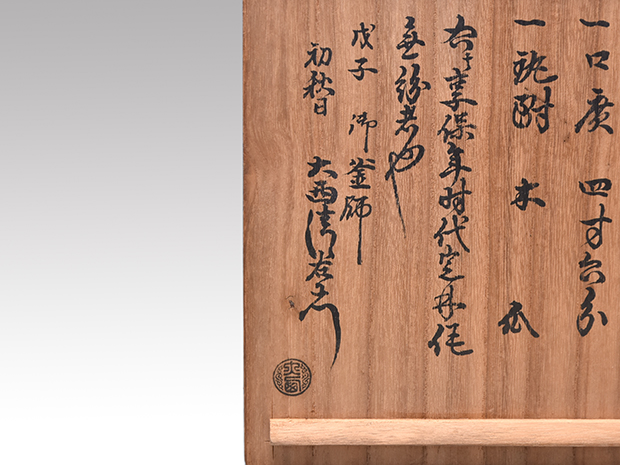 一口廣 四寸六分
一釻附 木瓜
右者享保年時代定林作
無紛者也
戊子 御釜師
初秋日 大西清右衛門